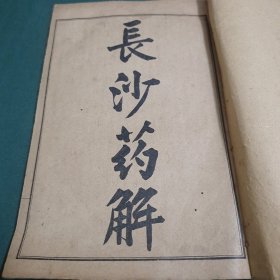 長沙药解